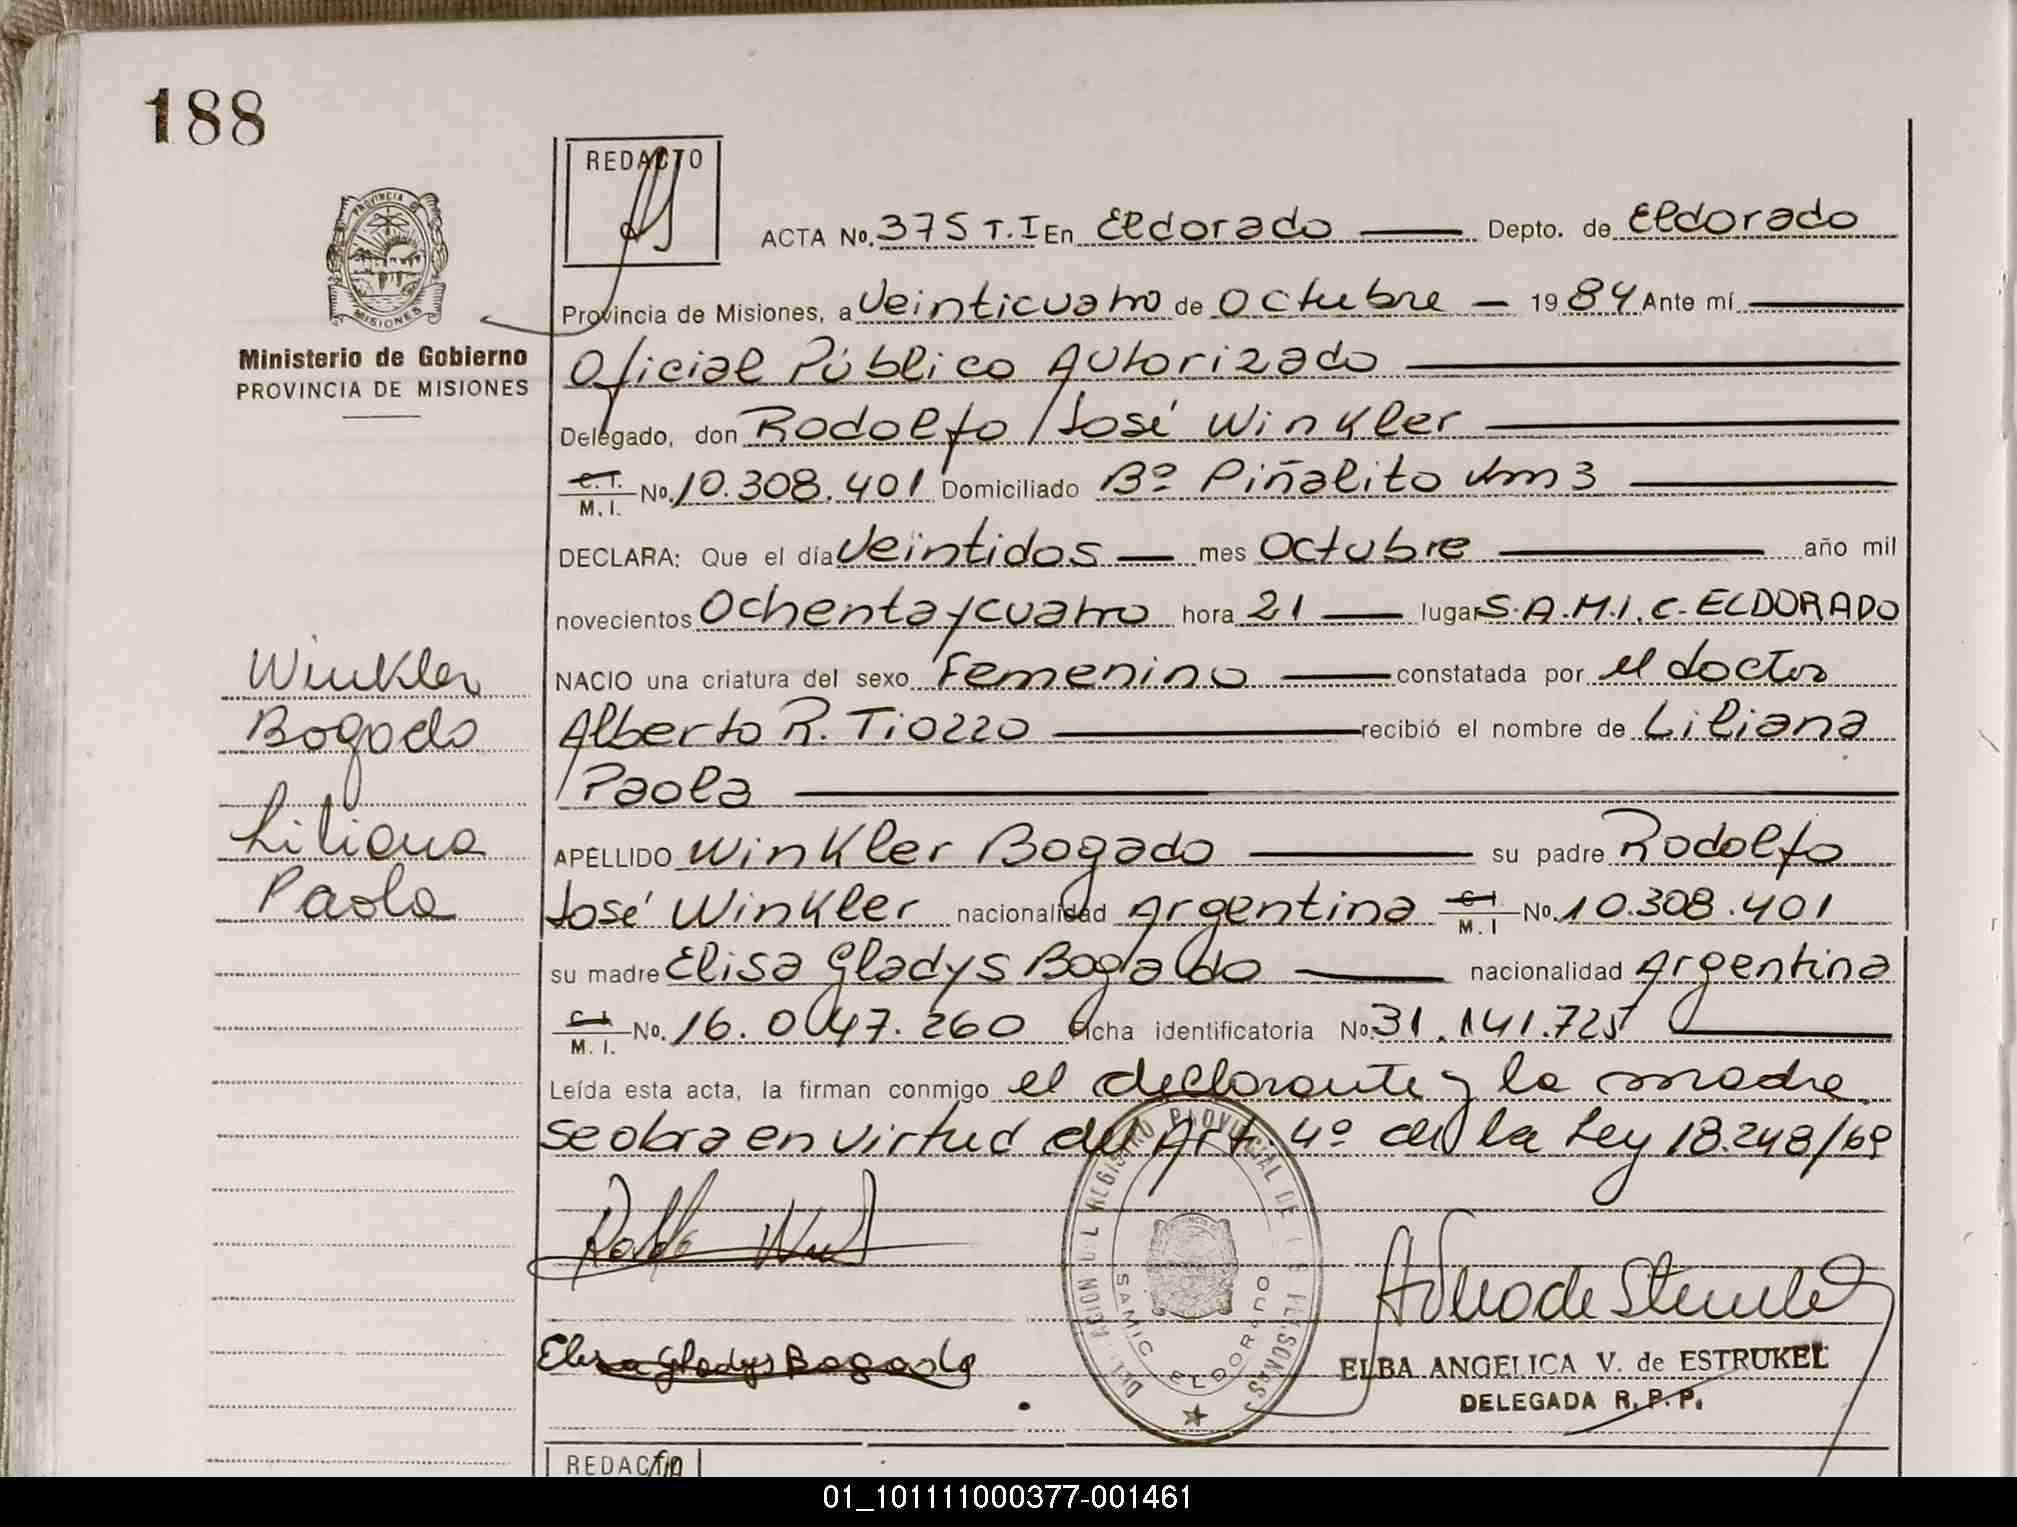 188
REDACTO
ACTA No. 375 T.I En Eldorado Depto. de Eldorado
Provincia de Misiones, a Veinticuatro de Octubre 1984 Ante mí
Ministerio de Gobierno
PROVINCIA DE MISIONES
Oficial Público Autorizado
Delegado, don Rodolfo José Winkler
C.I. M.I. No. 10.308.401 Domiciliado Bº Piñalito Km 3
DECLARA: Que el día Veintidos mes Octubre año mil
novecientos Ochenta y cuatro hora 21 lugar S.A.M.I.C. ELDORADO
Winkler
Bogado
Liliana
Paola
NACIO una criatura del sexo Femenino constatada por el doctor
Alberto R. Tiozzo recibió el nombre de Liliana
Paola
APELLIDO Winkler Bogado su padre Rodolfo
José Winkler nacionalidad Argentina C.I. M.I No. 10.308.401
su madre Elisa Gladys Bogado nacionalidad Argentina
C.I. M.I. No. 16.047.260 Ficha identificatoria No. 31.141.725
Leída esta acta, la firman conmigo el declarante y la madre
se obra en virtud del Art. 4º de la Ley 18.248/69
Elisa Gladys Bogado
DELEGACION DEL REGISTRO PROVINCIAL DE LAS PERSONAS
SAMIC ELDORADO
ELBA ANGELICA V. de ESTRUKEL
DELEGADA R.P.P.
REDACTO
01_101111000377-001461